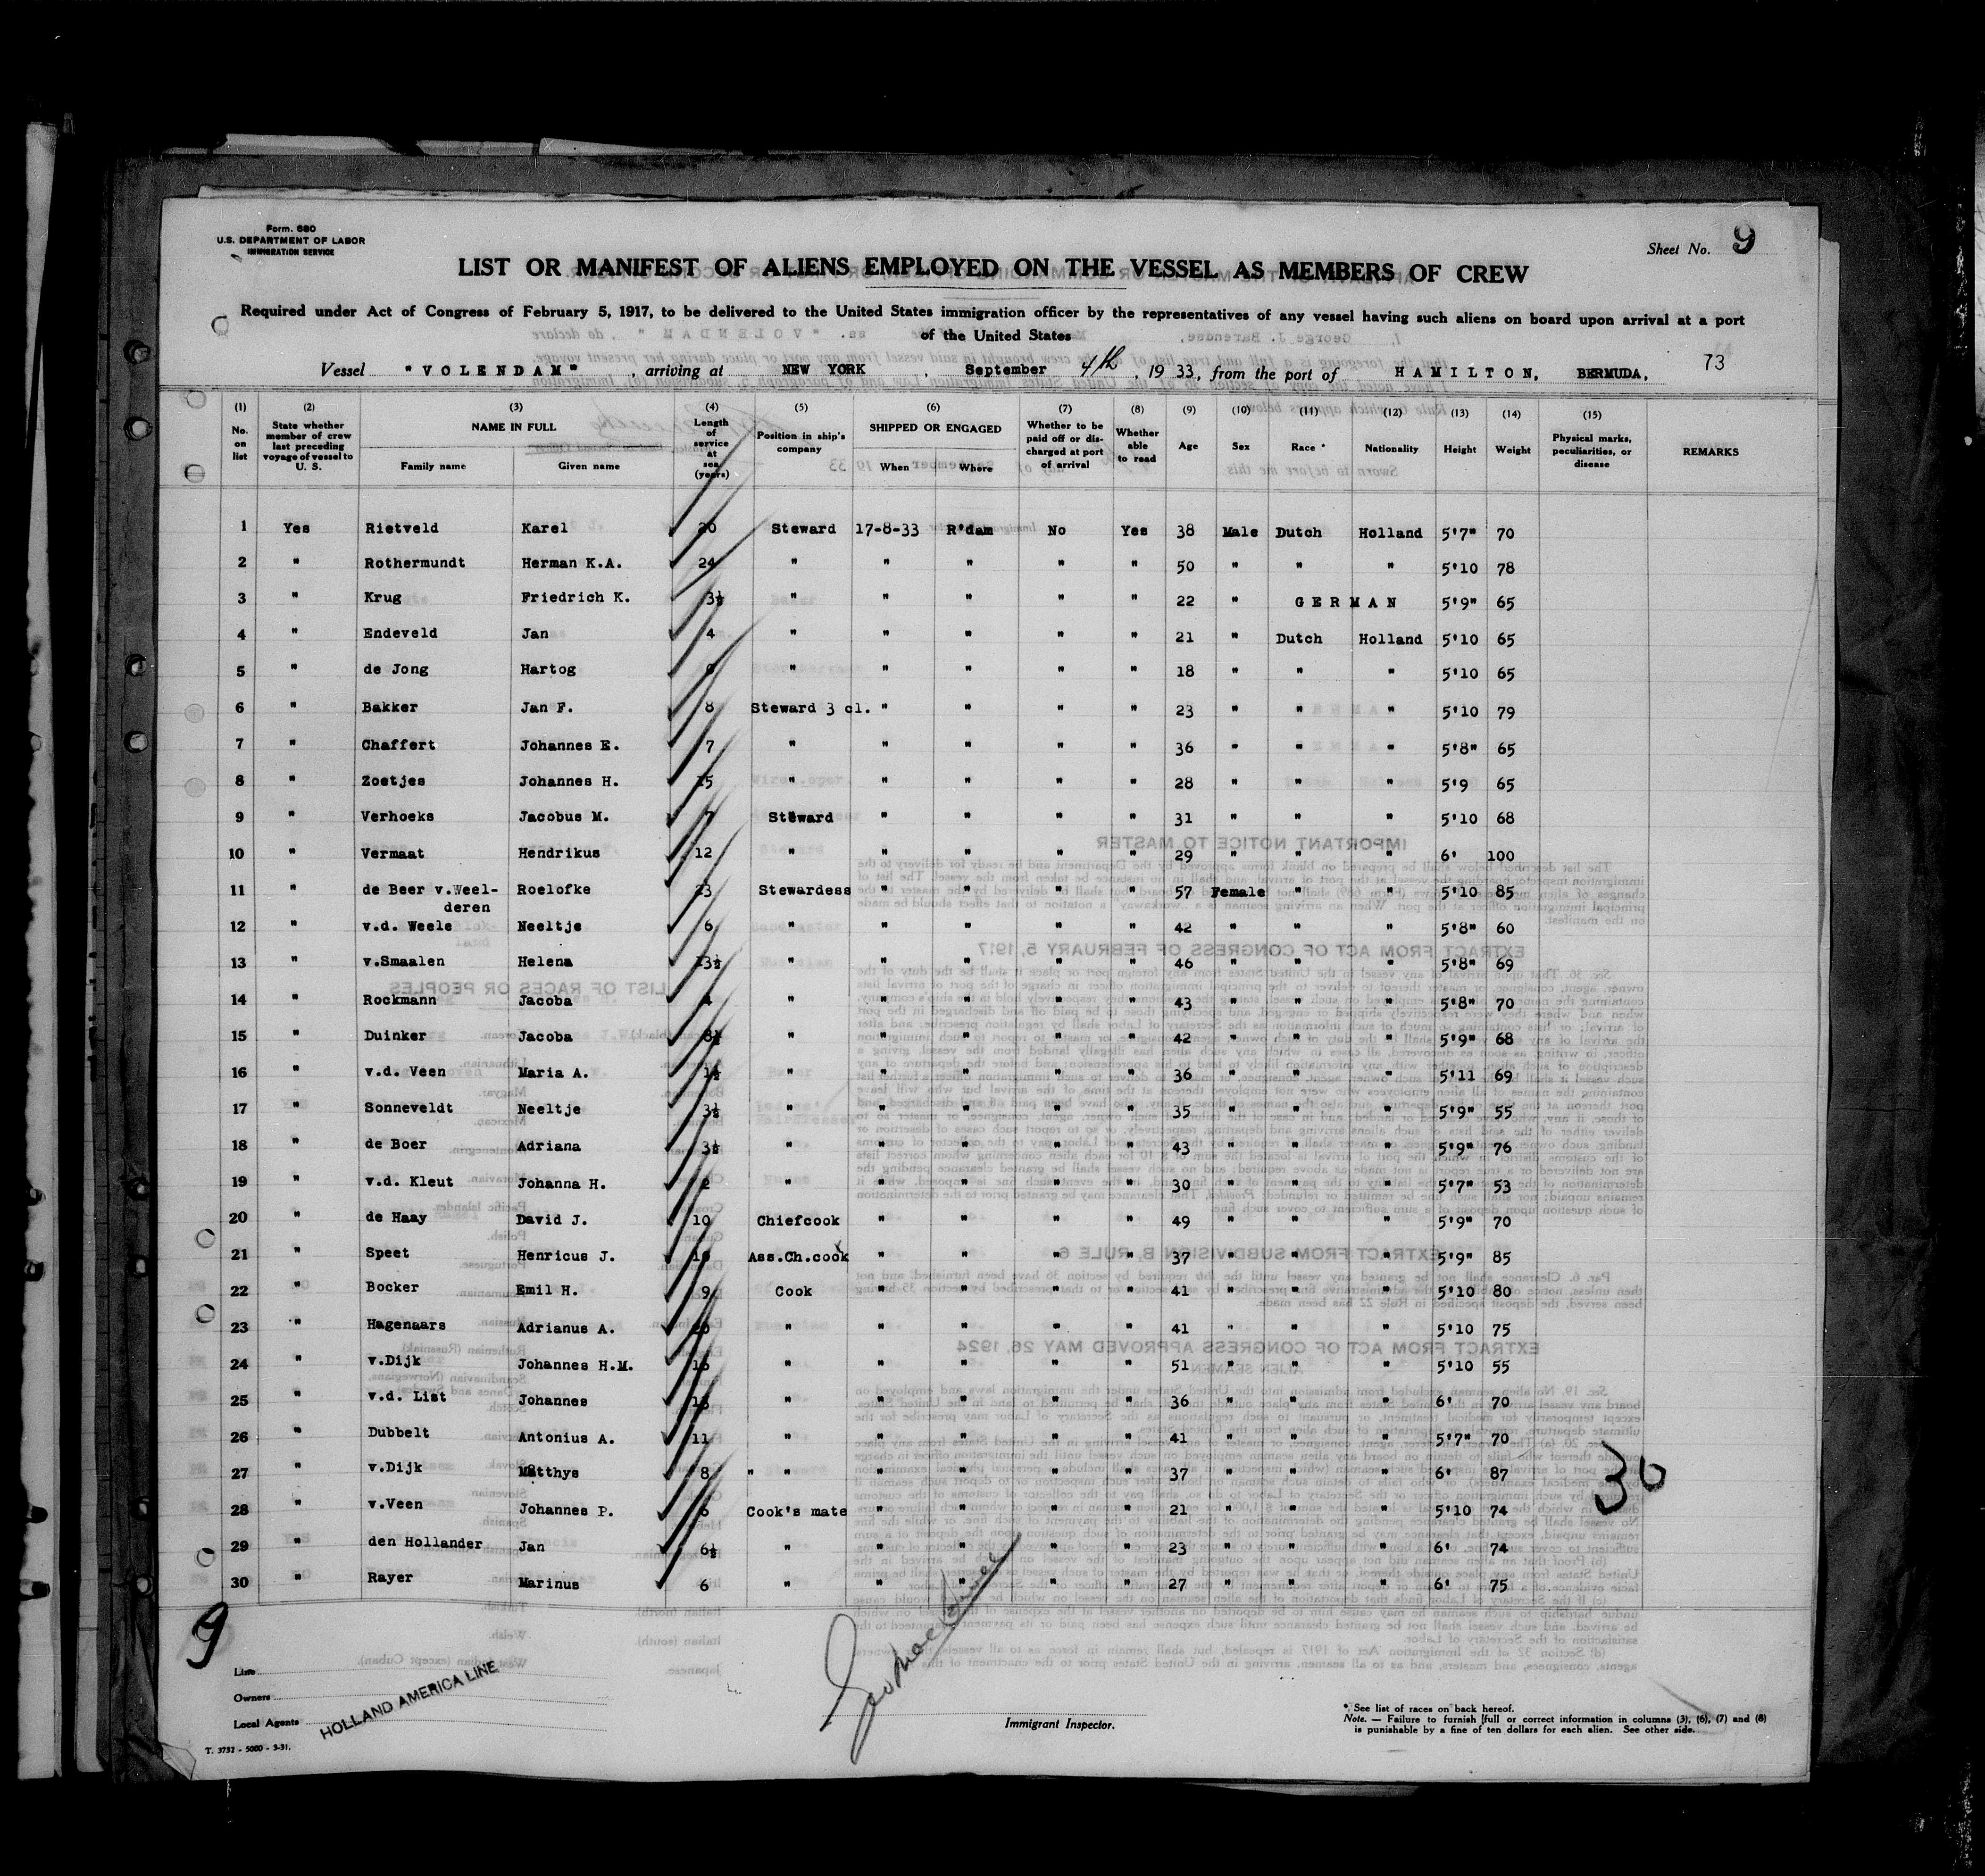 Form. 680
U.S. DEPARTMENT OF LABOR
IMMIGRATION SERVICE
Sheet No. 9
LIST OR MANIFEST OF ALIENS EMPLOYED ON THE VESSEL AS MEMBERS OF CREW
Required under Act of Congress of February 5, 1917, to be delivered to the United States immigration officer by the representatives of any vessel having such aliens on board upon arrival at a port
of the United States
Vessel "VOLENDAM", arriving at NEW YORK, September 4th, 1933, from the port of HAMILTON, BERMUDA, 73
(1) No. on list (2) State whether member of crew last preceding voyage of vessel to U. S. (3) NAME IN FULL Family name Given name (4) Length of service at sea (years) (5) Position in ship's company (6) SHIPPED OR ENGAGED When Where (7) Whether to be paid off or discharged at port of arrival (8) Whether able to read (9) Age (10) Sex (11) Race * (12) Nationality (13) Height (14) Weight (15) Physical marks, peculiarities, or disease REMARKS
1 Yes Rietveld Karel 20 Steward 17-8-33 R'dam No Yes 38 Male Dutch Holland 5'7" 70
2 " Rothermundt Herman K.A. 24 " " " " " 50 " " " 5'10 78
3 " Krug Friedrich K. 3½ " " " " " 22 " GERMAN 5'9" 65
4 " Endeveld Jan 4 " " " " " 21 " Dutch Holland 5'10 65
5 " de Jong Hartog " " " " " 18 " " " 5'10 65
6 " Bakker Jan F. 8 Steward 3 cl. " " " " 23 " " " 5'10 79
7 " Chaffert Johannes E. 7 " " " " " 36 " " " 5'8" 65
8 " Zoetjes Johannes H. 15 " " " " " 28 " " " 5'9 65
9 " Verhoeks Jacobus M. 7 Steward " " " " 31 " " " 5'10 68
10 " Vermaat Hendrikus 12 " " " " " 29 " " " 6' 100
11 " de Beer v.Weel- Roelofke 23 Stewardess " " " " 57 Female " " 5'10 85
deren
12 " v.d. Weele Neeltje 6 " " " " " 42 " " " 5'8" 60
13 " v.Smaalen Helena 13½ " " " " " 46 " " " 5'8" 69
14 " Rockmann Jacoba 4 " " " " " 43 " " " 5'8" 70
15 " Duinker Jacoba 8½ " " " " " 42 " " " 5'9" 68
16 " v.d. Veen Maria A. 1½ " " " " " 36 " " " 5'11 69
17 " Sonneveldt Neeltje 3½ " " " " " 35 " " " 5'9" 55
18 " de Boer Adriana 3½ " " " " " 43 " " " 5'9" 76
19 " v.d. Kleut Johanna H. 2 " " " " " 30 " " " 5'7" 53
20 " de Haay David J. 10 Chiefcook " " " " 49 " " " 5'9" 70
21 " Speet Henricus J. Ass.Ch.cook " " " " 37 " " " 5'9" 85
22 " Bocker Emil H. 9 Cook " " " " 41 " " " 5'10 80
23 " Hagenaars Adrianus A. 20 " " " " " 41 " " " 5'10 75
24 " v.Dijk Johannes H.M. " " " " " 51 " " " 5'10 55
25 " v.d. List Johannes " " " " " 36 " " " 6' 70
26 " Dubbelt Antonius A. 11 " " " " " 41 " " " 5'7" 70
27 " v.Dijk Matthys 8 " " " " " " 37 " " " 6' 87
28 " v.Veen Johannes P. 6 Cook's mate " " " " 21 " " " 5'10 74
29 " den Hollander Jan 6½ " " " " " 23 " " " 6' 74
30 " Rayer Marinus 6 " " " " " 27 " " " 6' 75
30
9
Line
Owners
Local Agents
HOLLAND AMERICA LINE
T. 3732 - 5000 - 3-31.
Immigrant Inspector.
* See list of races on back hereof.
Note. — Failure to furnish full or correct information in columns (3), (6), (7) and (8)
is punishable by a fine of ten dollars for each alien. See other side.